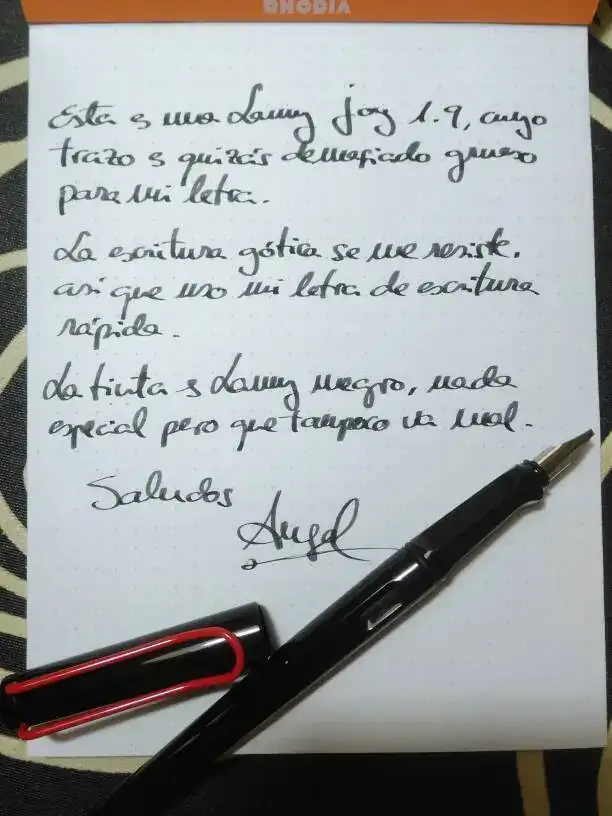 RHODIA
Esta es una Lamy joy 1.9, cuyo
trazo es quizás demasiado grueso
para mi letra.
La escritura gótica se me resiste.
así que uso mi letra de escritura
rápida.
La tinta es Lamy negro, nada
especial pero que tampoco va mal.
Saludos
Angel